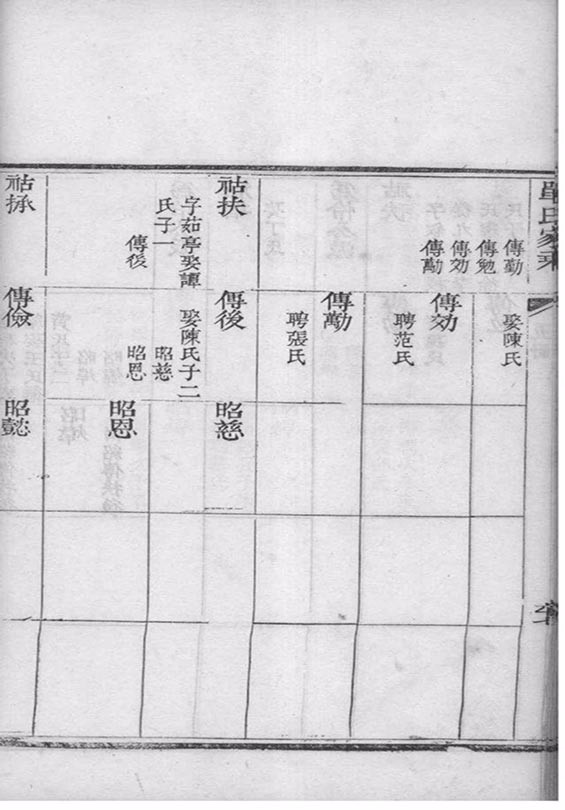 單氏家乘
傳勤
傳勉
傳効
傳勱
娶陳氏
傳効
聘范氏
傳勱
聘張氏
祜扶
字茹亭娶譚
氏子一
傳後
傳後
娶陳氏子二
昭慈
昭恩
昭慈
昭恩
祜拯
傳儉
昭懿